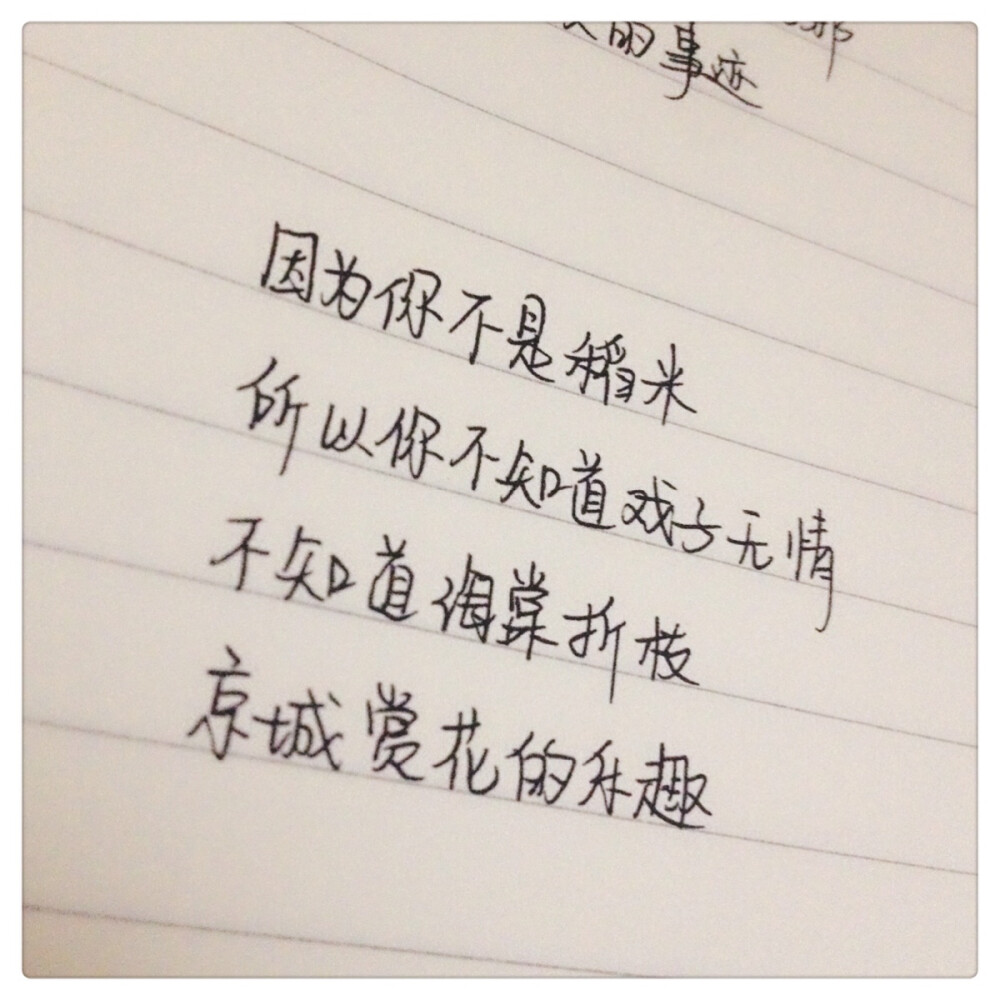 的事迹
因为你不是稻米
所以你不知道戏子无情
不知道海棠折枝
京城赏花的乐趣